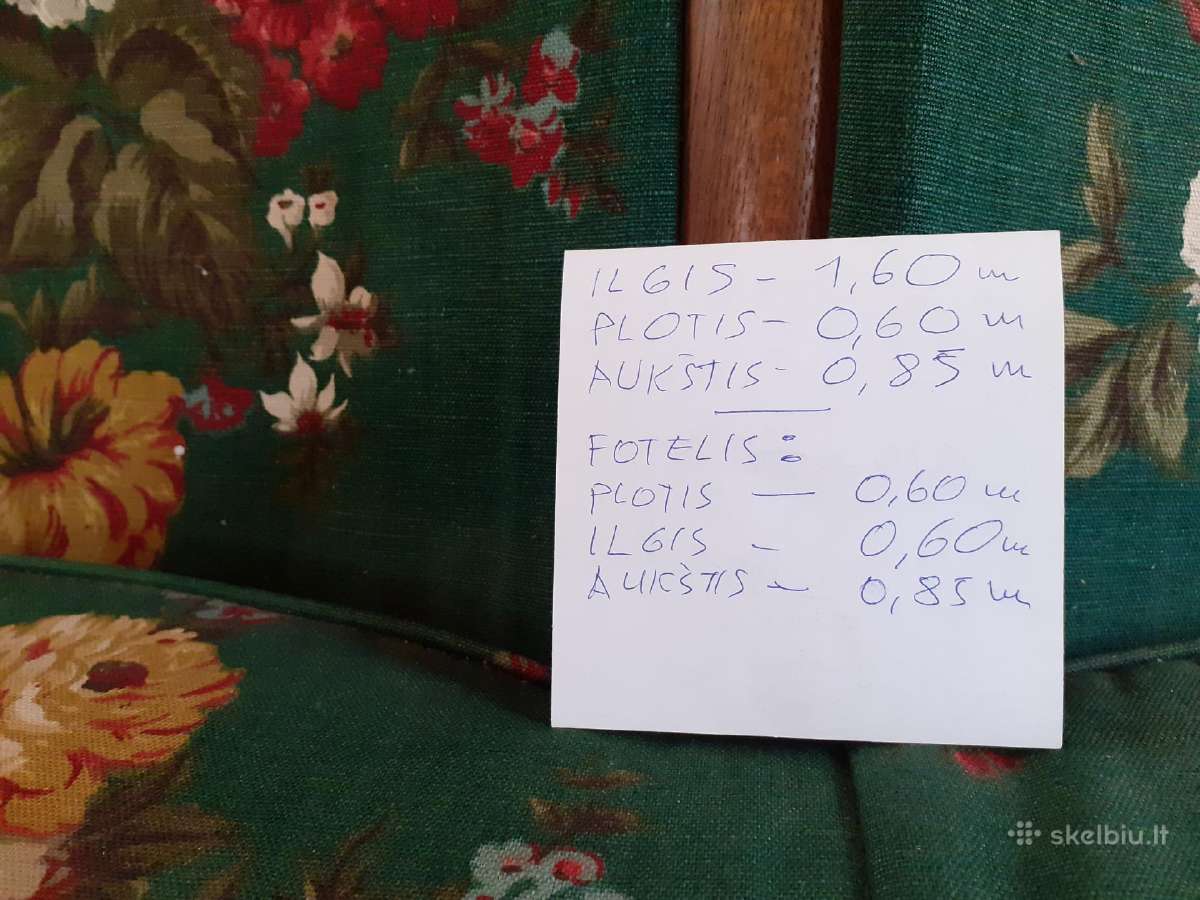 ILGIS - 1,60 m
PLOTIS - 0,60 m
AUKŠTIS - 0,85 m
FOTELIS:
PLOTIS — 0,60 m
ILGIS - 0,60 m
AUKŠTIS - 0,85 m
skelbiu.lt